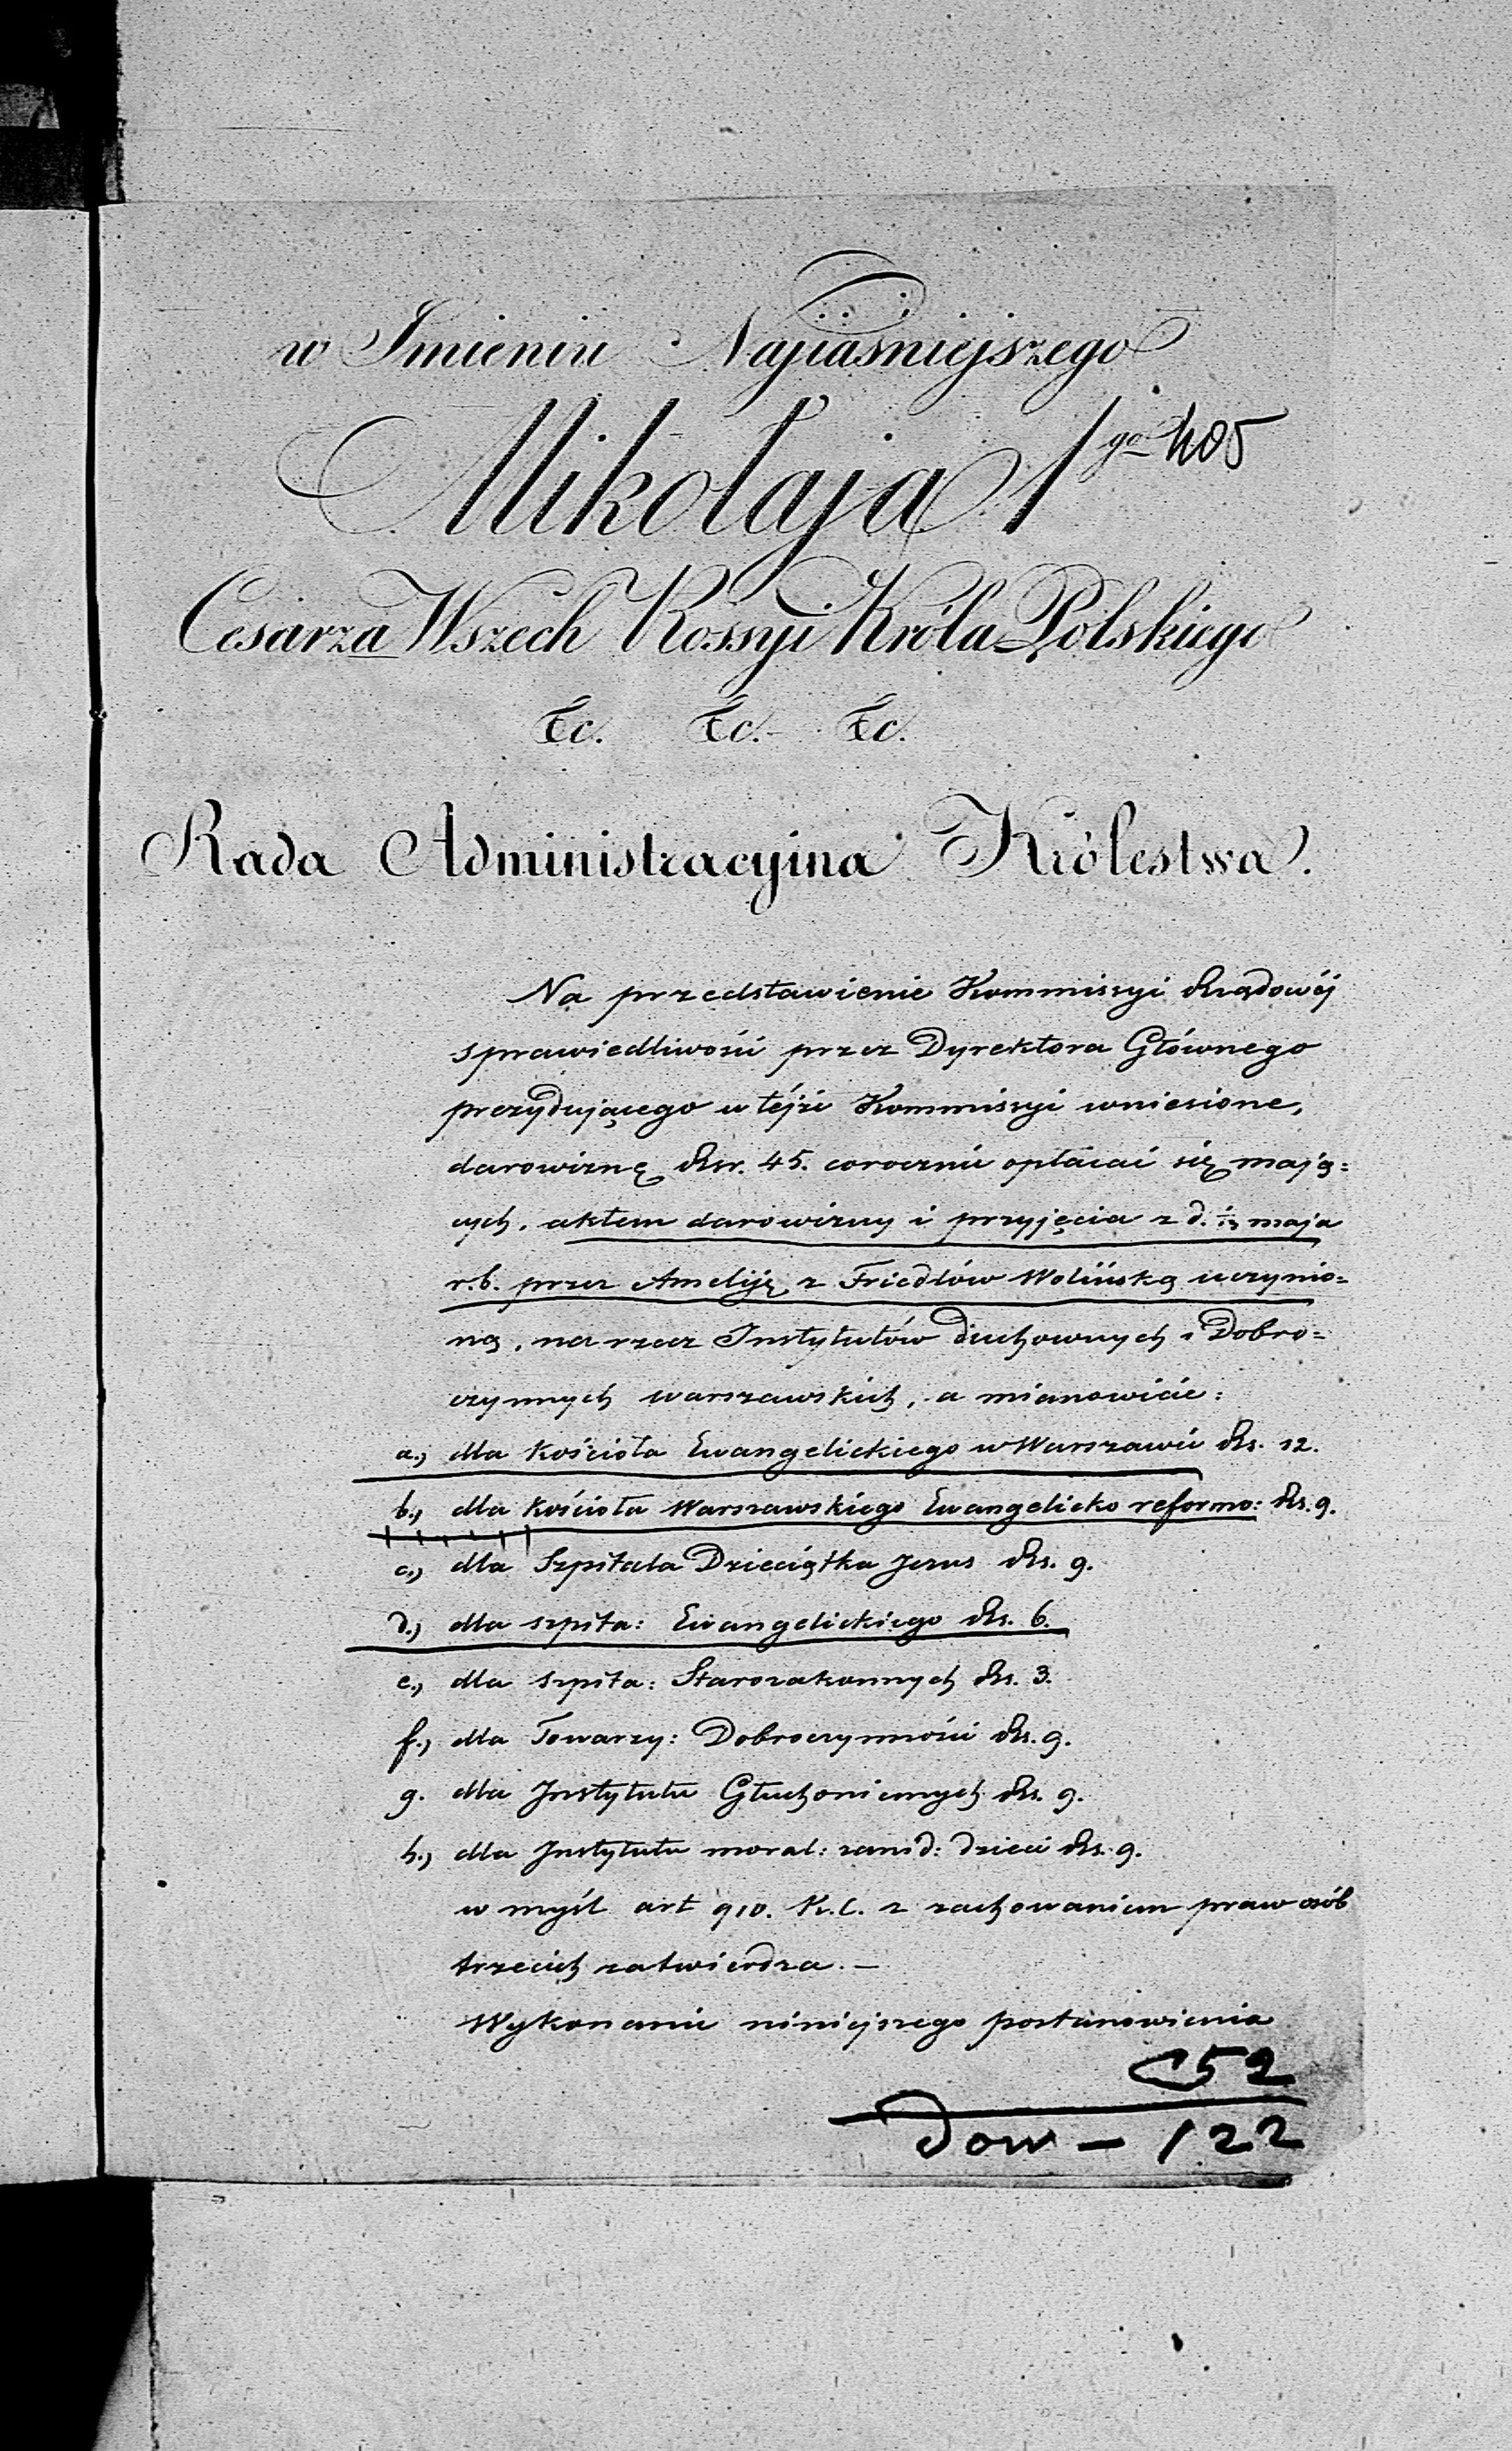 w Imieniu Najiaśniejszego
Mikołaja 1go 405
Cesarza Wszech Rossyi Króla Polskiego
&c. &c. &c.
Rada Administracyjna Królestwa.
Na przedstawienie Kommissyi Rządowéj
sprawiedliwości przez Dyrektora Głównego
prezydującego w téjże Kommissyi wniesione,
darowiznę Rsr. 45. corocznie opłacać się mają=
cych, aktem darowizny i przyjęcia z d. maja
r.b. przez Ameliję z Friedlów Wolińską uczynio=
ną, na rzecz Instytutów duchownych i Dobro=
czynnych warszawskich, a mianowicie:
a., dla kościoła Ewangelickiego w Warszawie Rs. 12.
b., dla kościoła Warszawskiego Ewangelicko reformo: Rs. 9.
c., dla Szpitala Dzieciątka Jezus Rs. 9.
d., dla szpita: Ewangelickiego Rs. 6.
e., dla szpita: Starozakonnych Rs. 3.
f., dla Towarzy: Dobroczynności Rs. 9.
g. dla Instytutu Głuchoniemych Rs. 9.
h., dla Instytutu moral: zanid: dzieci Rs. 9.
w myśl art 910. K.C. z zachowaniem praw osób
trzecich zatwierdza.—
Wykonanie niniejszego postanowienia
52
dow — 122